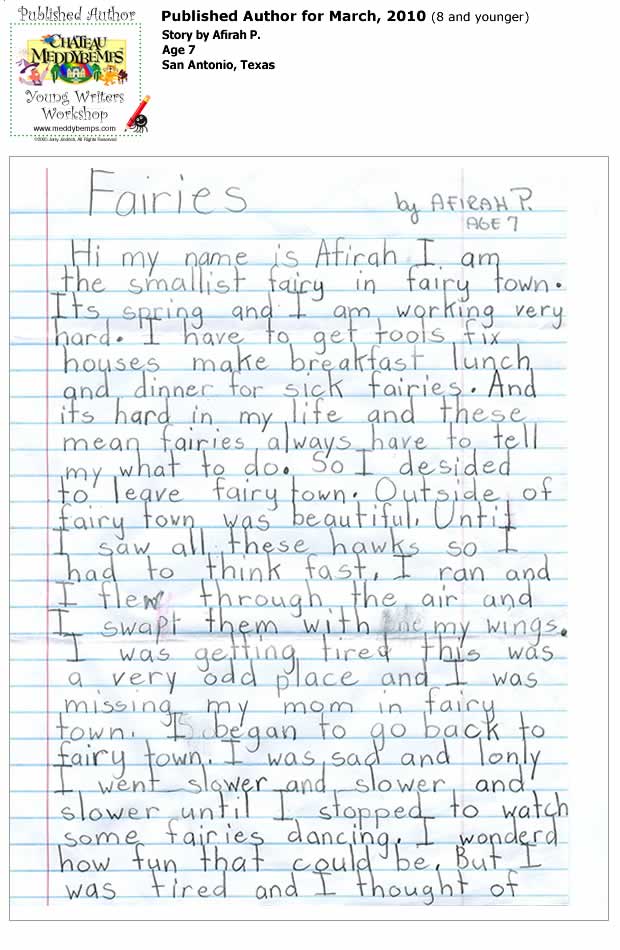 Published Author
CHATEAU
MEDDYBEMPS
Young Writers
Workshop
www.meddybemps.com
Published Author for March, 2010 (8 and younger)
Story by Afirah P.
Age 7
San Antonio, Texas
Fairies
by AFIRAH P.
AGE 7
Hi my name is Afirah I am
the smallist fairy in fairy town.
Its spring and I am working very
hard. I have to get tools fix
houses make breakfast lunch
and dinner for sick fairies. And
its hard in my life and these
mean fairies always have to tell
my what to do. So I desided
to leave fairy town. Outside of
fairy town was beautiful. Until
I saw all these hawks so I
had to think fast, I ran and
I flew through the air and
I swapt them with my wings.
I was getting tired this was
a very odd place and I was
missing my mom in fairy
town. I began to go back to
fairy town. I was sad and lonly
I went slower and slower and
slower until I stopped to watch
some fairies dancing. I wonderd
how fun that could be. But I
was tired and I thought of